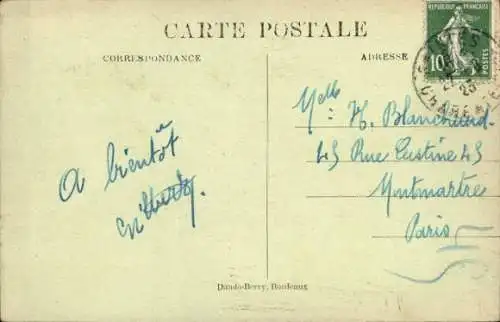 CARTE POSTALE
CORRESPONDANCE
ADRESSE
REPUBLIQUE FRANÇAISE
10
POSTES
A bientôt
Melle H. Blanchard
45 Rue Custine 45
Montmartre
Paris
Dando-Berry, Bordeaux